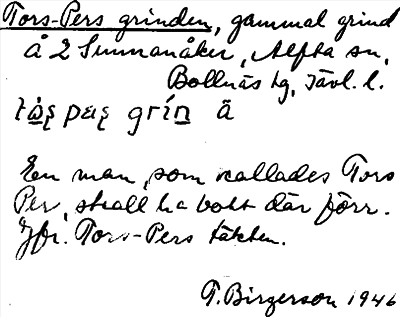 Tors-Pers grinden, gammal grind
å 2 Sunnanåker, Alfta sn,
Bollnäs tg, Jävl. l.
grín
En man, som kallades Tors
Per, skall ha bott där förr.
Jfr. Tors-Pers täkten.
T. Birgerson 1946